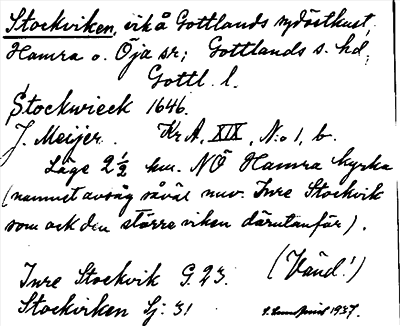 Stockviken, vik å Gottlands sydöstkust,
Hamra o. Öja sr; Gottlands s. hd;
Gottl. l.
Stockwieck 1646.
J. Meijer. Kr A, XIX, N:o 1, b.
Läge 2 ½ km. NÖ Hamra kyrka
(namnet avsåg såväl nuv. Inre Stockvik
som ock den större viken därutanför).
(Vänd!)
Inre Stockvik G. 23.
Stockviken Sj: 31
1937.